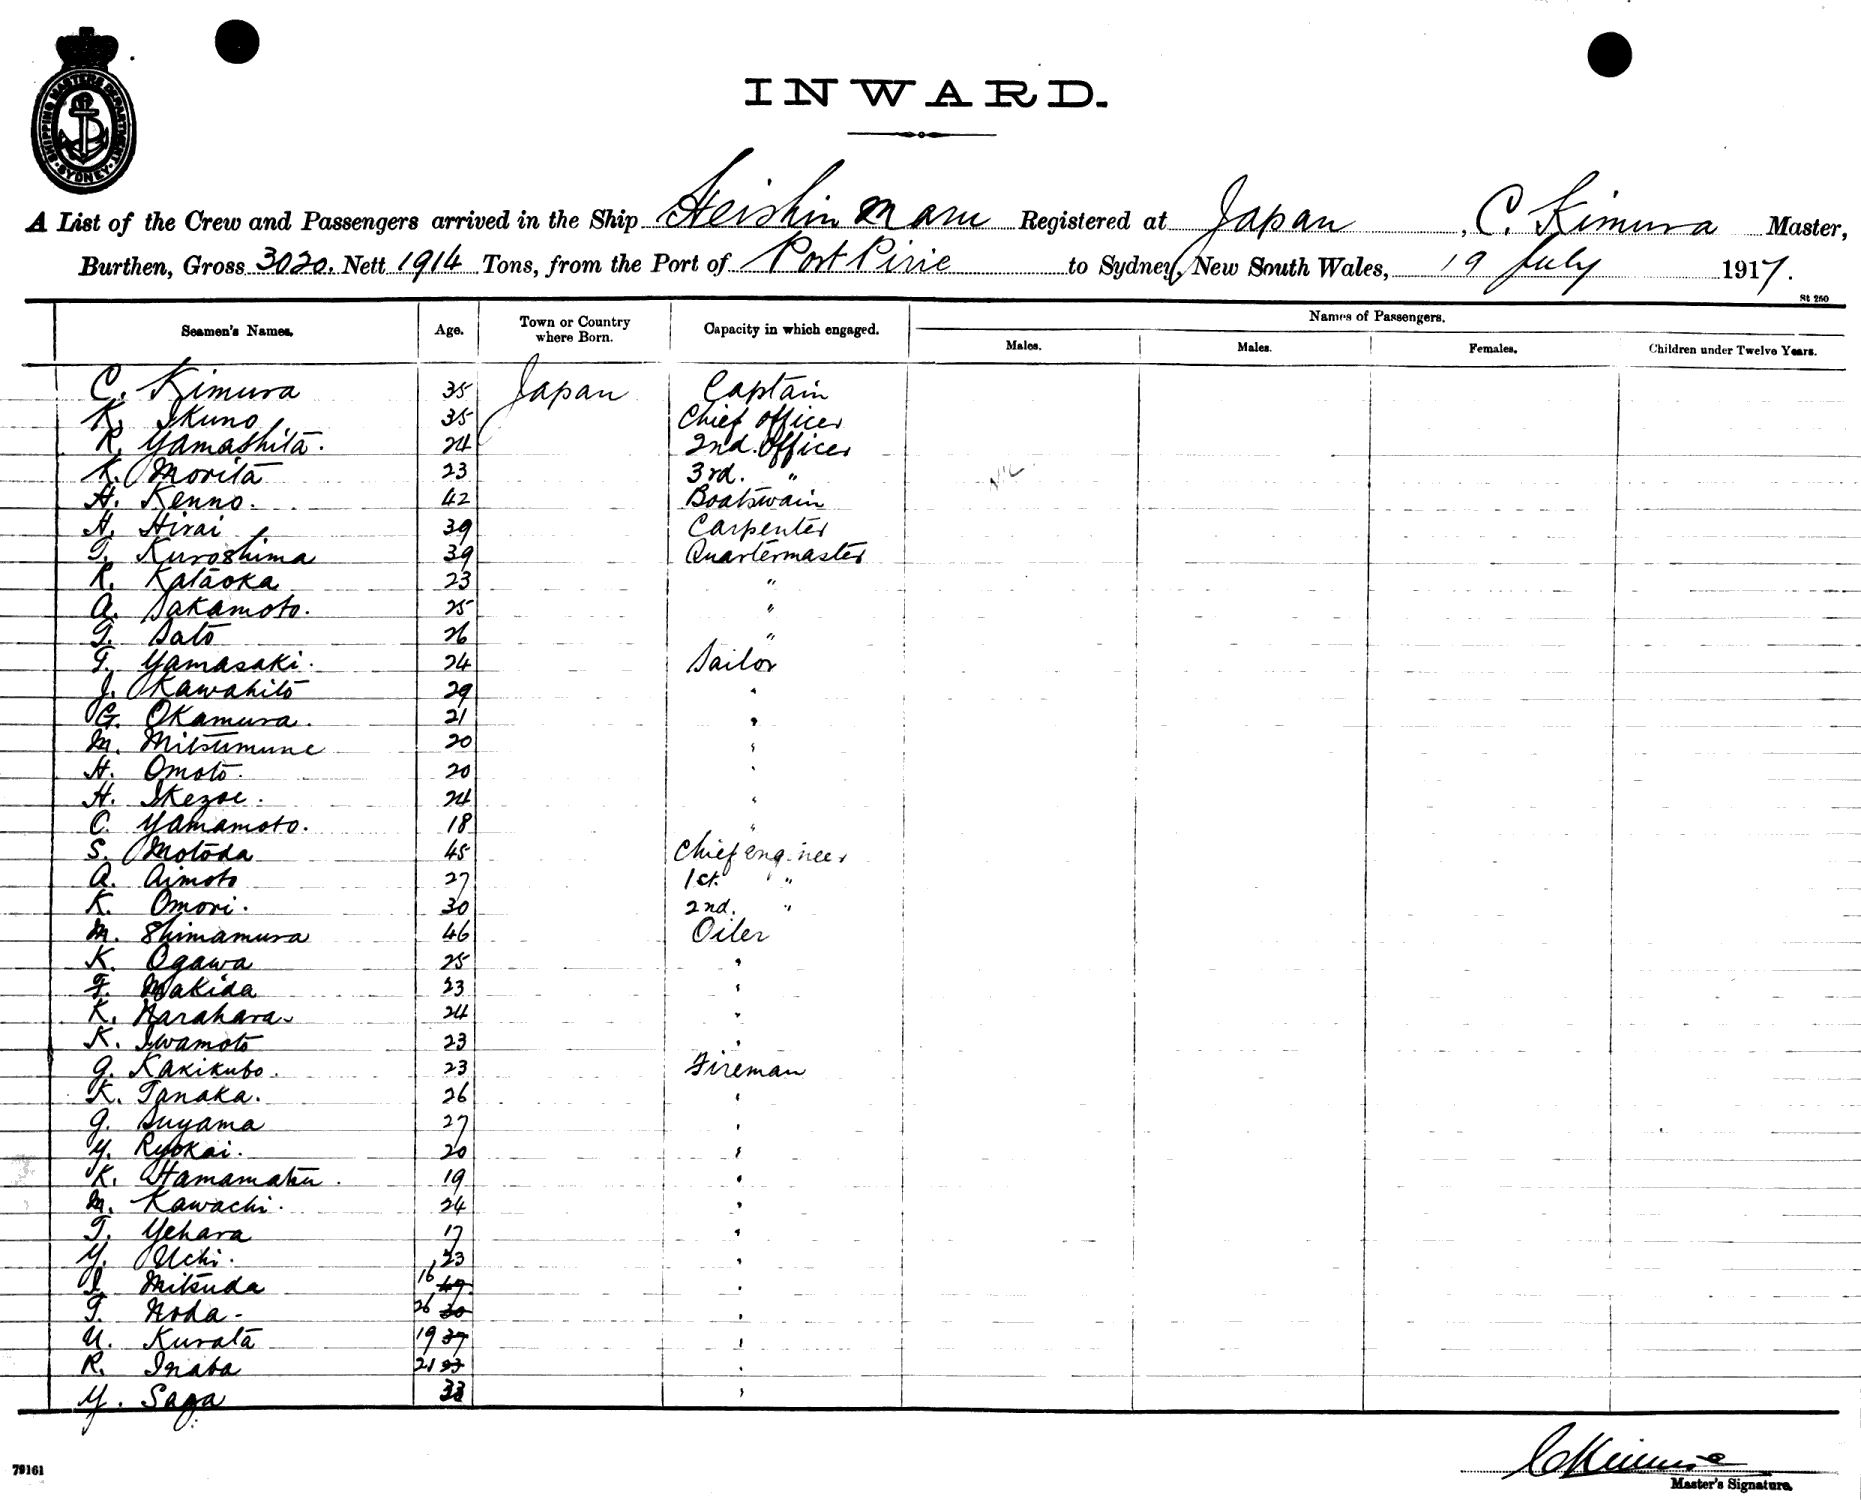 SHIPPING MASTERS DEPARTMENT SYDNEY
INWARD.
A List of the Crew and Passengers arrived in the Ship Heishin Maru Registered at Japan, C. Kimura Master,
Burthen, Gross 3020. Nett 1914 Tons, from the Port of Port Pirie to Sydney, New South Wales, 19 July 1917.
St 260
Seamen's Names. Age. Town or Country where Born. Capacity in which engaged. Names of Passengers.
Males. Males. Females. Children under Twelve Years.
C. Kimura 35 Japan Captain
K. Ikuno 35 Chief Officer
R. Yamashita. 24 2nd. Officer
K. Morita 23 3rd. "
Nil
H. Kenno. 42 Boatswain
H. Hirai 39 Carpenter
T. Kuroshima 39 Quartermaster
R. Kataoka 23 "
A. Sakamoto. 25 "
T. Sato 26 "
T. Yamasaki. 24 Sailor
J. Kawahito 29 "
G. Okamura. 21 "
M. Mitsumune 20 "
H. Omoto. 20 "
H. Ikezoe. 24 "
C. Yamamoto. 18 "
S. Motoda 45 Chief engineer
A. Aimoto 27 1st. "
K. Omori. 30 2nd. "
M. Shimamura 46 Oiler
K. Ogawa 25 "
F. Makida 23 "
K. Narahara. 24 "
K. Iwamoto 23 "
G. Kakikubo. 23 Fireman
K. Tanaka. 26 "
G. Suyama 27 "
Y. Ryokai. 20 "
K. Hamamatsu. 19 "
M. Kawachi. 24 "
T. Yehara 17 "
Y. Uchi. 23 "
I. Mitsuda 16 47 "
T. Noda 26 30 "
U. Kurata 19 37 "
R. Inaba 21 23 "
Y. Saga 33 "
C Kimura
79161
Master's Signature.